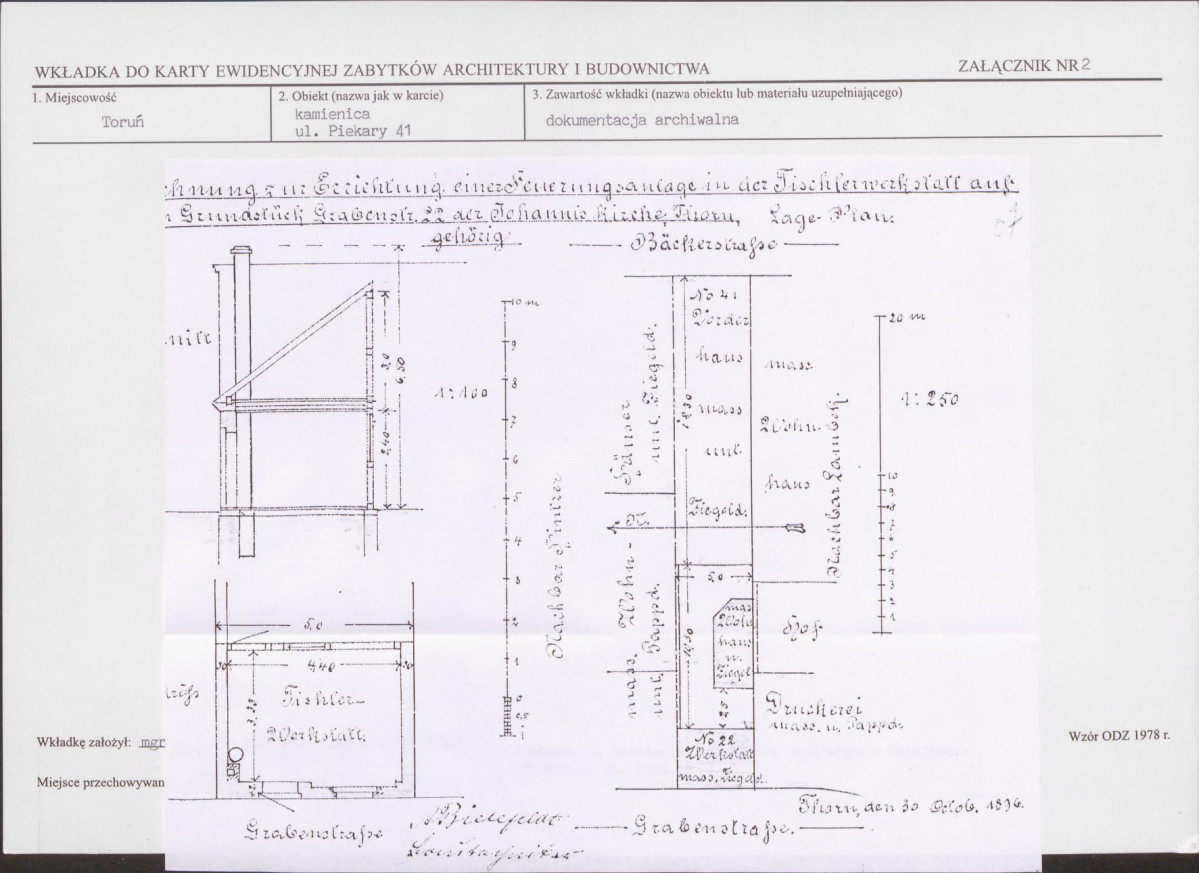 WKŁADKA DO KARTY EWIDENCYJNEJ ZABYTKÓW ARCHITEKTURY I BUDOWNICTWA
ZAŁĄCZNIK NR 2
1. Miejscowość
Toruń
2. Obiekt (nazwa jak w karcie)
kamienica
ul. Piekary 41
3. Zawartość wkładki (nazwa obiektu lub materiału uzupełniającego)
dokumentacja archiwalna
hnung zur Errichtung einer Feuerungsanlage in der Tischlerwerkstatt auf
Grundstück Grabenstr. 22 der Johannis Kirche, Thorn,
gehörig
Lage-Plan:
Bäckerstraße
nitt
3,0
6,50
2,40
1:100
10 m
9
8
7
6
5
4
3
2
1
0
0,5
1
Nachbar
Häuser
mit. Ziegeld.
mass. Wohn-
mit. Pappd.
No 41
Vorder
haus
mass
mit.
Ziegeld.
N.
5,0
mass
Wohn
haus
u.
Ziegel
No 22
Werkstatt
mass. Ziegeld.
mass.
Wohn-
haus
Nachbar Lambeck.
Hof
Druckerei
mass. u. Pappd.
20 m
1:250
10
9
8
7
6
5
4
3
2
1
5,0
4,40
30
30
Tischler-
Werkstatt.
Grabenstraße
Bielefeldt
Bautechniker
Grabenstraße.
Thorn, den 30 Octob. 1896.
Wkładkę założył: mgr
Miejsce przechowywan
Wzór ODZ 1978 r.